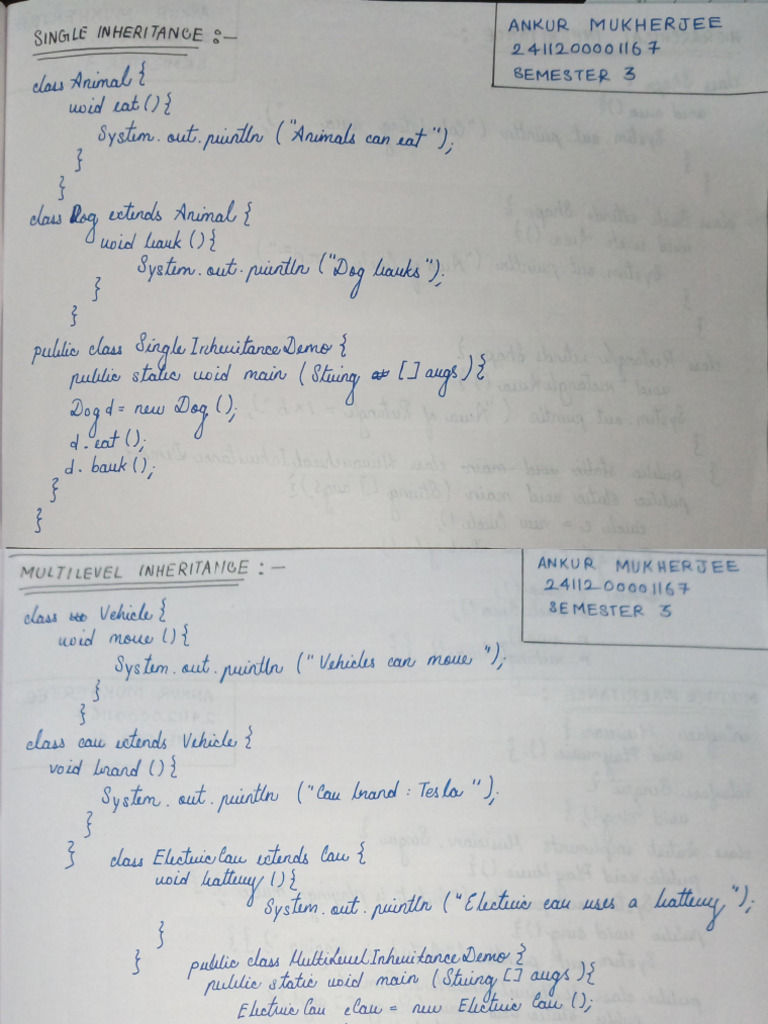 SINGLE INHERITANCE :-
ANKUR MUKHERJEE
2411200001167
SEMESTER 3
class Animal {
void eat () {
System.out.println ("Animals can eat");
}
}
class Dog extends Animal {
void bark () {
System.out.println ("Dog barks");
}
}
public class Single InheritanceDemo {
public static void main (String [] args) {
Dog d = new Dog ();
d.eat ();
d.bark ();
}
}
MULTILEVEL INHERITANCE :-
ANKUR MUKHERJEE
24112 00001167
SEMESTER 3
class Vehicle {
void move () {
System.out.println ("Vehicles can move");
}
}
class car extends Vehicle {
void brand () {
System.out.println ("Car brand : Tesla");
}
} class ElectricCar extends Car {
void battery () {
System.out.println ("Electric car uses a battery");
}
} public class MultiLevelInheritanceDemo {
public static void main (String [] args) {
ElectricCar eCar = new Electric Car ();